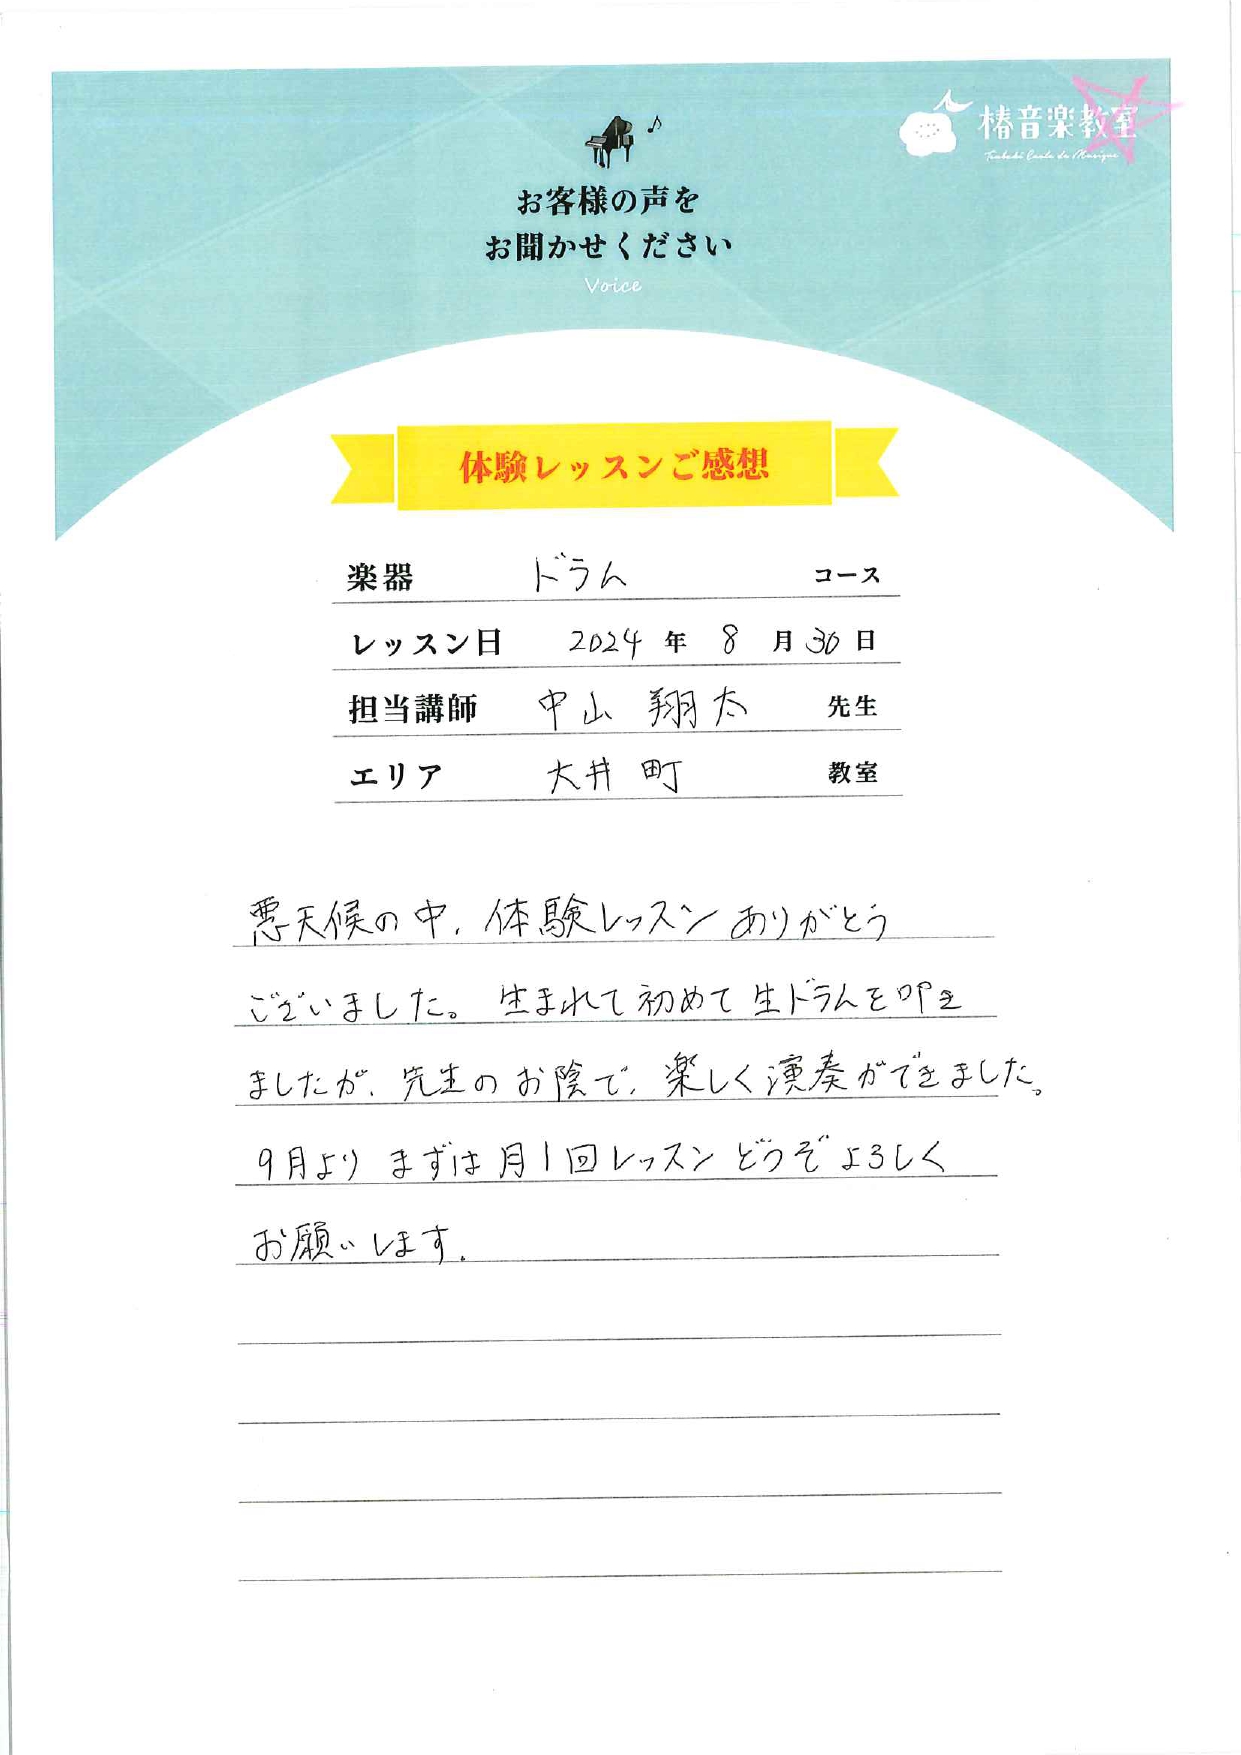 椿音楽教室
Tsubaki Ecole de Musique
お客様の声を
お聞かせください
Voice
体験レッスンご感想
楽器 ドラム コース
レッスン日 2024 年 8 月 30 日
担当講師 中山 翔太 先生
エリア 大井町 教室
悪天候の中、体験レッスンありがとう
ございました。生まれて初めて生ドラムを叩き
ましたが、先生のお陰で、楽しく演奏ができました。
9月より まずは月1回レッスンどうぞよろしく
お願いします。